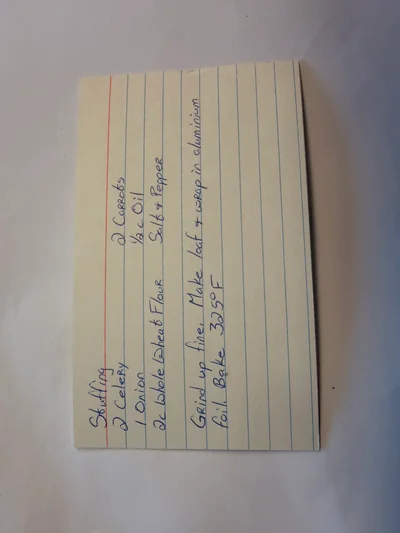 Stuffing
2 Celery 2 Carrots
1 Onion 1/2 c Oil
2c Whole Wheat Flour Salt + Pepper
Grind up fine. Make loaf + wrap in aluminium
foil. Bake 325°F